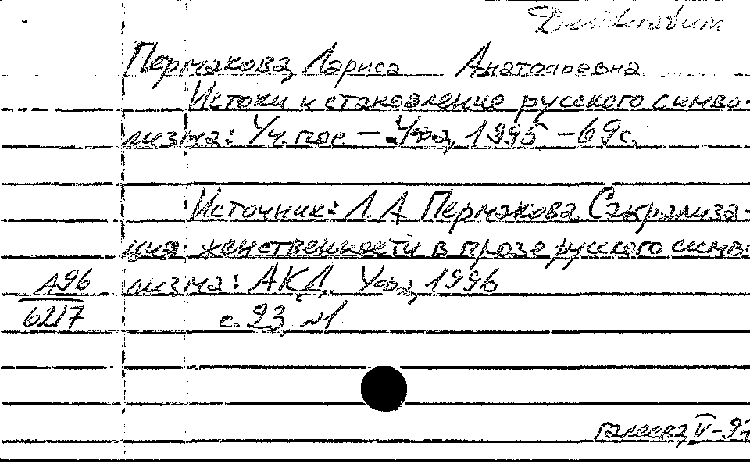 Пермякова, Лариса Анатольевна
Истоки и становление русского симво-
лизма: Уч. пос. – Уфа, 1995 – 69 с.
Источник: Л.А. Пермякова Сакрализа-
ция женственности в прозе русского симво-
лизма: АКД. Уфа, 1996
А96
6217
с. 23, №1